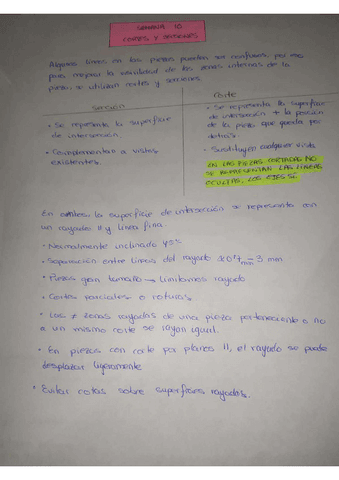 SEMANA 10
CORTES Y SECCIONES
Algunas líneas en las piezas pueden ser confusas, por eso
para mejorar la visibilidad de las zonas internas de la
pieza, se utilizan cortes y secciones.
Sección
• Se representa la superficie
de intersección.
• Complementan a vistas
existentes.
Corte
• Se representa la superficie
de intersección + la porción
de la pieza que queda por
detrás.
• Sustituyen cualquier vista
EN LAS PIEZAS CORTADAS NO
SE REPRESENTAN LAS LÍNEAS
OCULTAS, LOS EJES SÍ
En ambos la superficie de intersección se representa con
un rayado // y línea fina
• Normalmente inclinado 45º
• Separación entre líneas del rayado 0'7 min - 3 mm
• Piezas gran tamaño → limitamos rayado
• Cortes parciales o roturas.
• Las ≠ zonas rayadas de una pieza pertenecientes o no
a un mismo corte se rayan igual.
• En piezas con corte por planos //, el rayado se puede
desplazar ligeramente
• Evitar cotas sobre superficies rayadas.